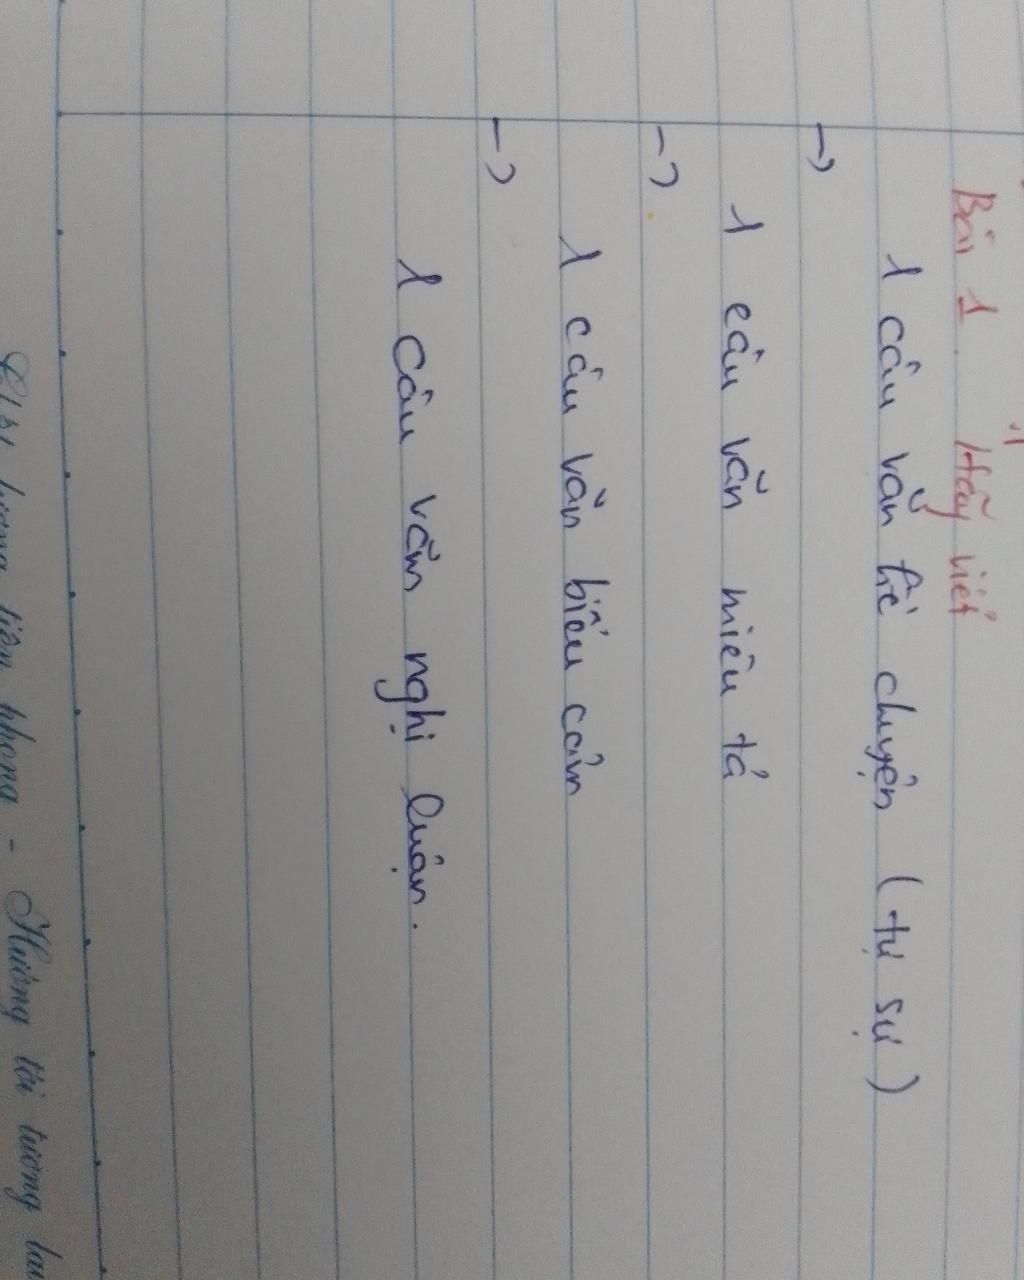 Bài 1 Hãy viết
1 câu văn kể chuyện (tự sự)
→
1 câu văn miêu tả
→
1 câu văn biểu cảm
→
1 câu văn nghị luận.
lượng tiên phong - Hướng tới tương lai